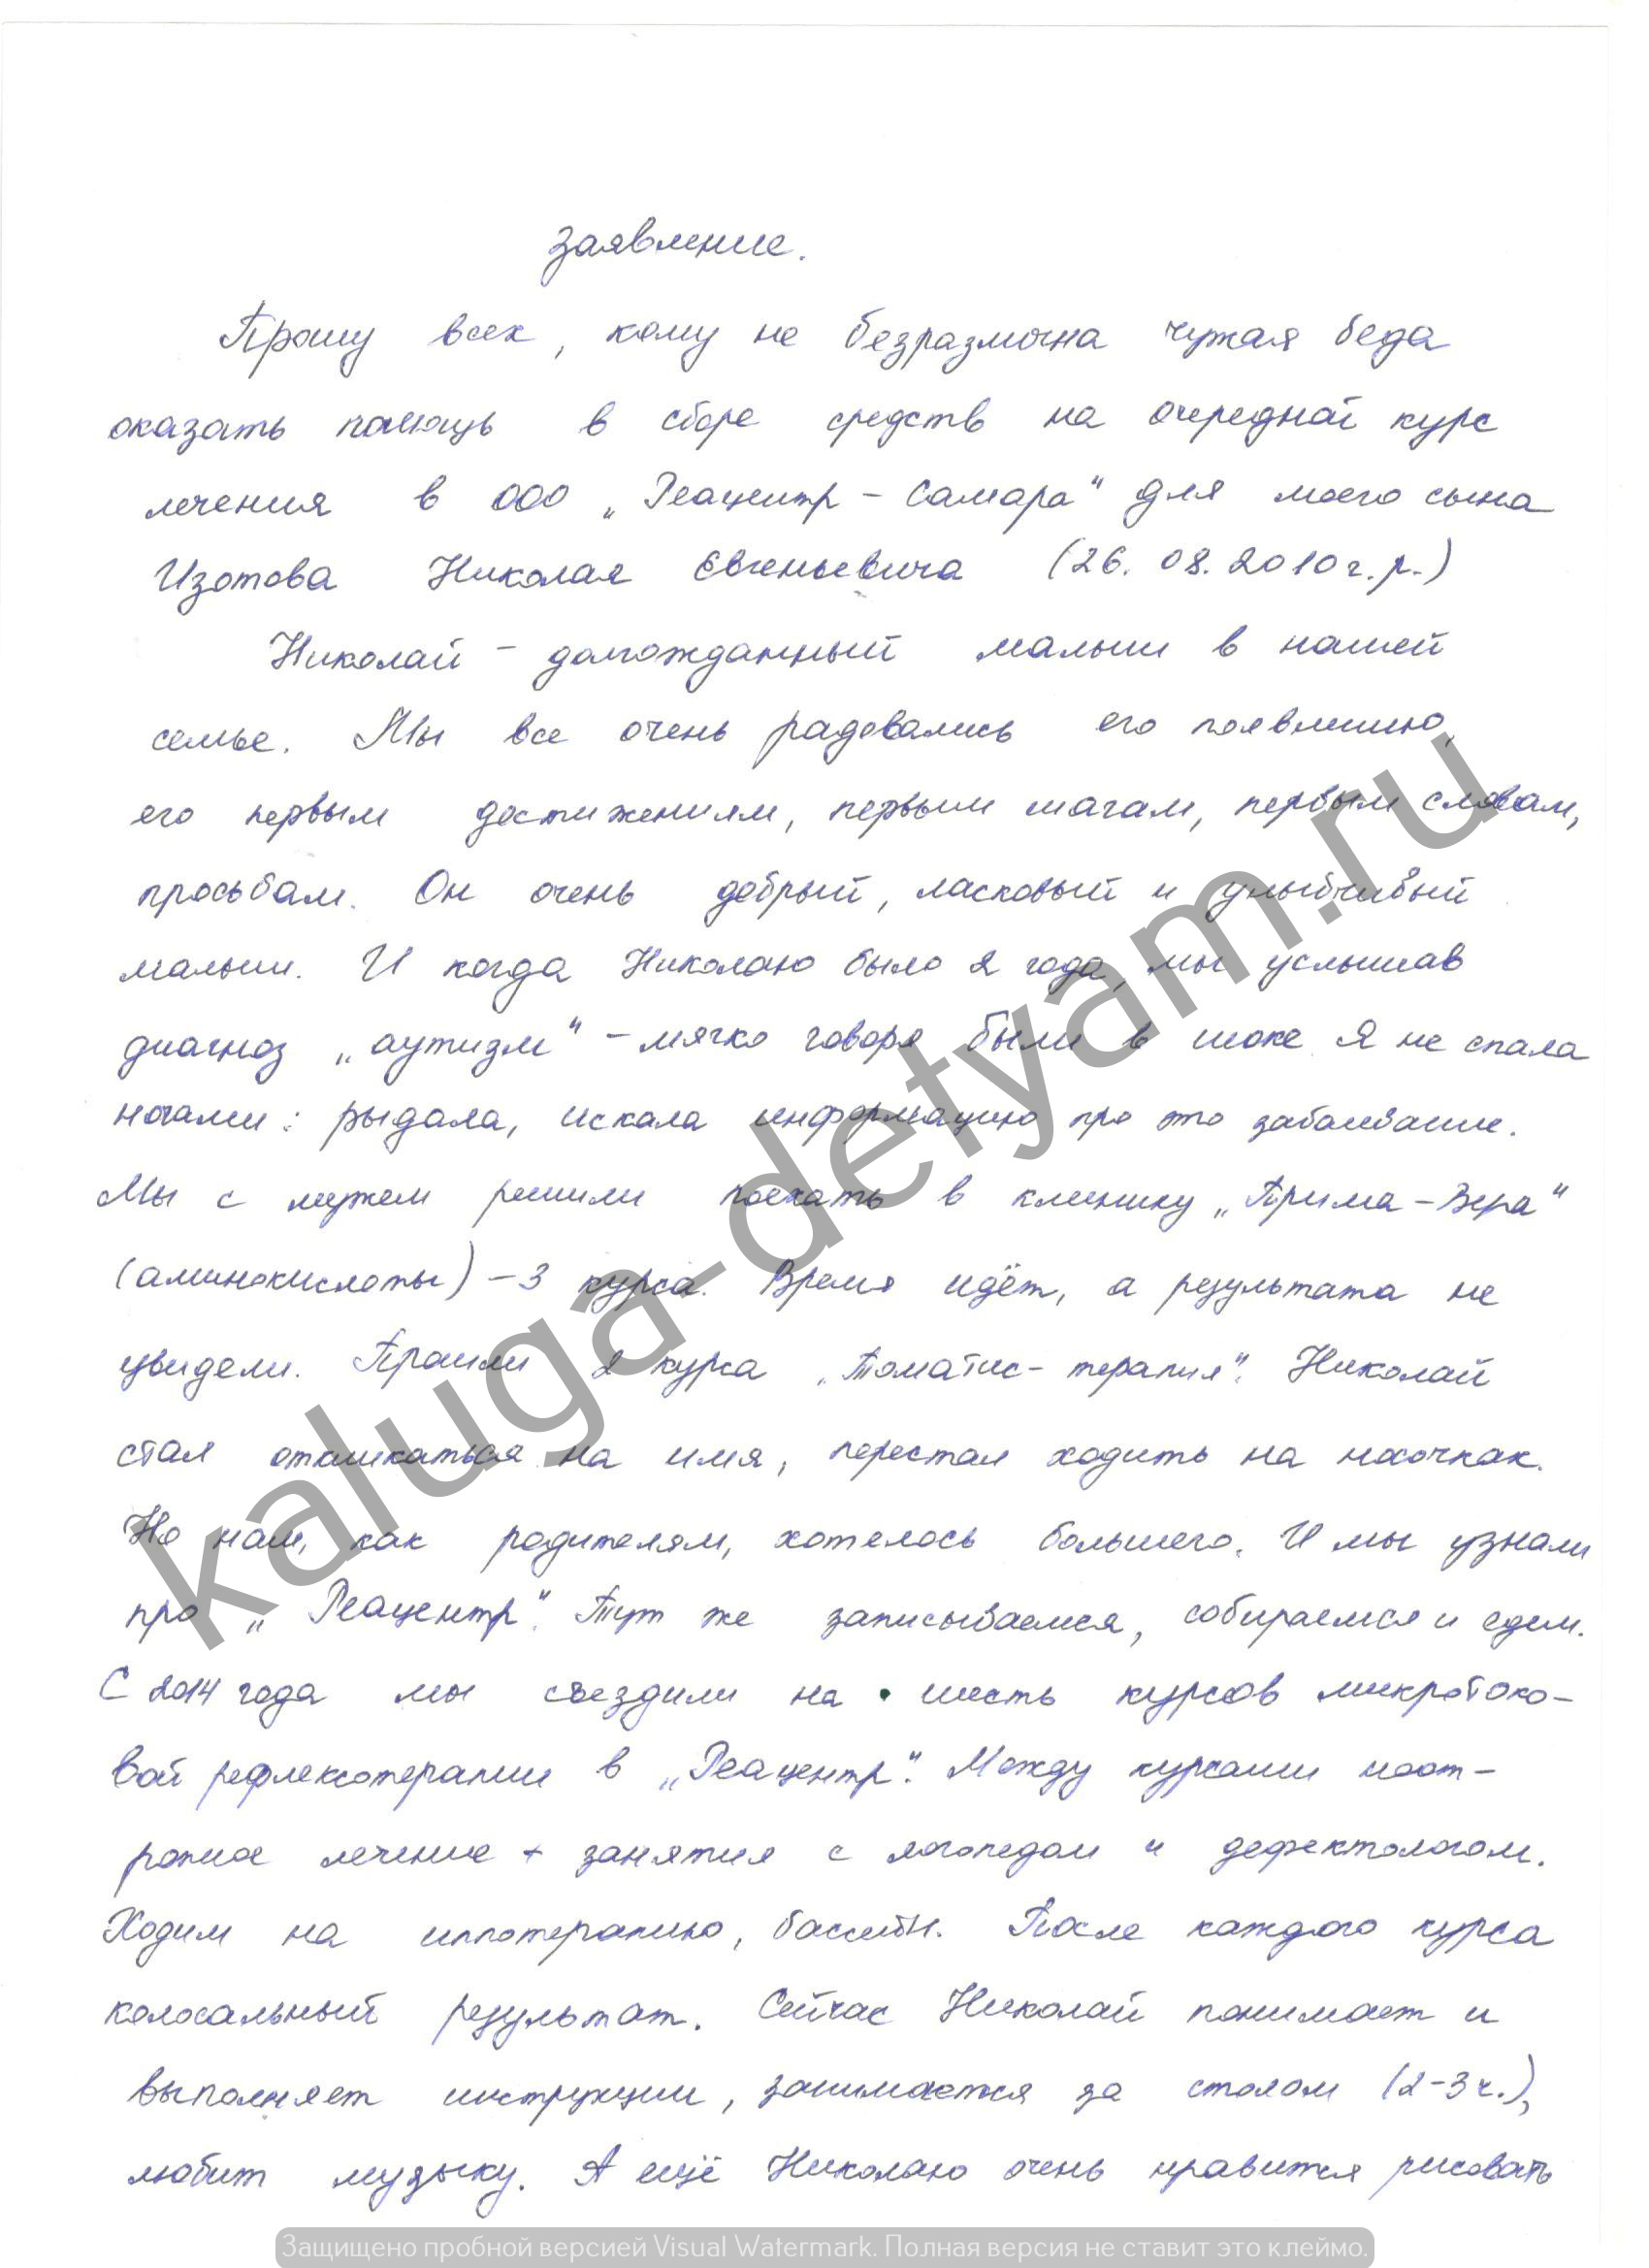 заявление.
Прошу всех, кому не безразлична чужая беда
оказать помощь в сборе средств на очередной курс
лечения в ООО „Реацентр - Самара" для моего сына
Изотова Николая Евгеньевича (26.08.2010г.р.)
Николай - долгожданный малыш в нашей
семье. Мы все очень радовались его появлению,
его первым достижениям, первым шагам, первым словам,
просьбам. Он очень добрый, ласковый и улыбчивый
малыш. И когда Николаю было 2 года, мы услышав
диагноз „аутизм" - мягко говоря были в шоке. Я не спала
ночами: рыдала, искала информацию про это заболевание.
Мы с мужем решили поехать в клинику „Прима-Вера"
(аминокислоты) - 3 курса. Время идёт, а результата не
увидели. Прошли 2 курса „Томатис-терапия". Николай
стал откликаться на имя, перестал ходить на носочках.
Но нам, как родителям, хотелось большего. И мы узнали
про „Реацентр". Тут же записываемся, собираемся и едем.
С 2014 года мы съездили на шесть курсов микротоко-
вой рефлексотерапии в „Реацентр". Между курсами ноот-
ропное лечение + занятия с логопедом и дефектологом.
Ходим на иппотерапию, бассейн. После каждого курса
колосальный результат. Сейчас Николай понимает и
выполняет инструкции, занимается за столом (2-3 ч.),
любит музыку. А ещё Николаю очень нравится рисовать
kaluga-detyam.ru
Защищено пробной версией Visual Watermark. Полная версия не ставит это клеймо.